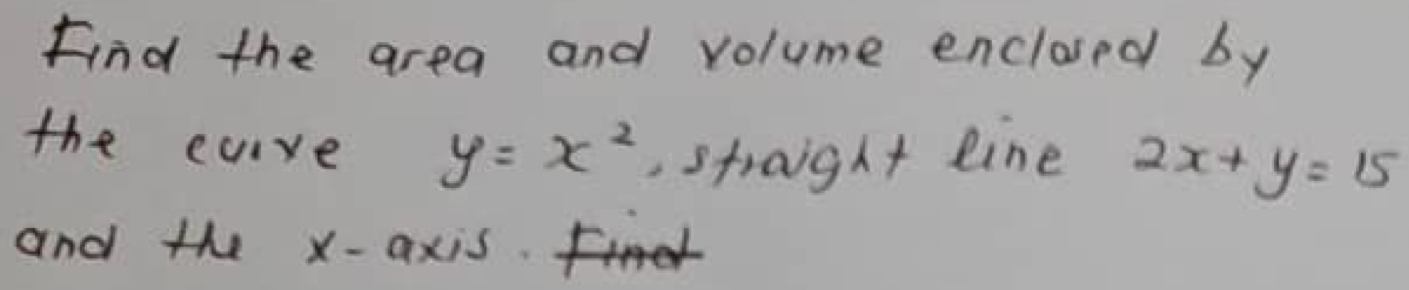 Find the area and volume enclosed by
the curve y = x², straight line 2x + y = 15
and the x-axis. Find